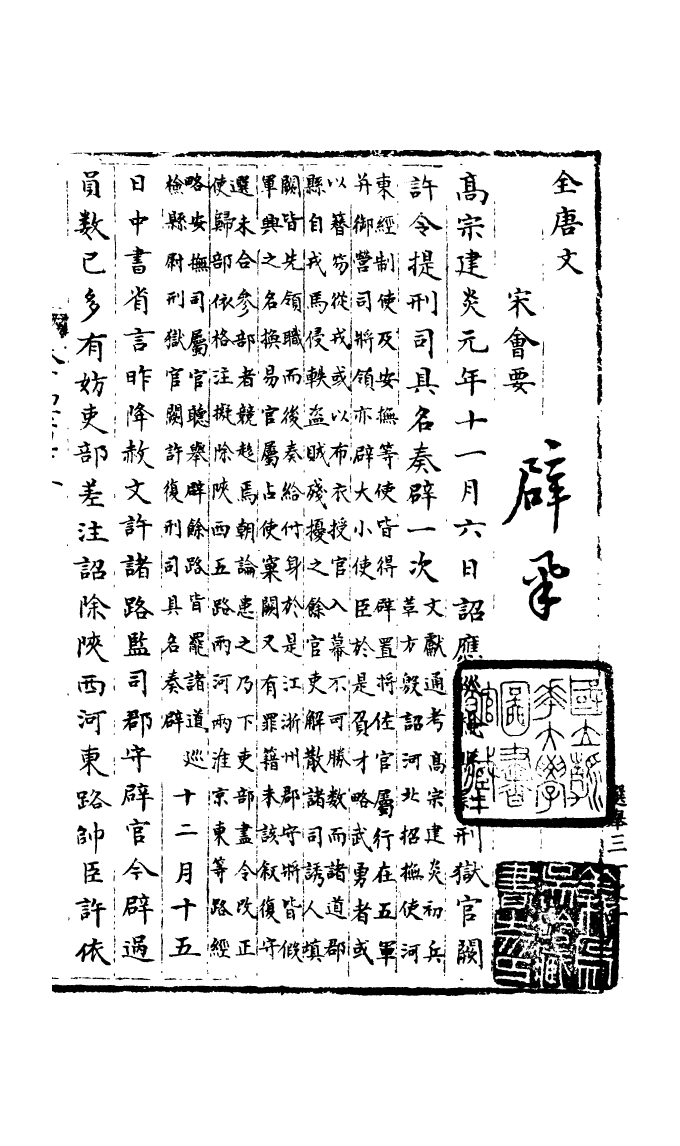 全唐文
宋會要
辟舉
高宗建炎元年十一月六日詔應刑獄官闕
許令提刑司具名奏辟一次
文獻通考高宗建炎初兵
革方殷詔河北招撫使河
東經制使及安撫等使皆得辟置將佐官屬行在五軍
并御營司將領亦辟大小使臣於是負才略武勇者或
以簪笏從戎或以布衣授官入幕不可勝數而諸道郡
縣自戎馬侵軼盜賊殘擾之餘官吏解散諸司誘人填
闕皆先領職而後奏給付身於是江浙州郡守將皆假
軍興之名換易官屬占使窠闕又有罪籍未該叙復守
選未合參部者競趍焉朝論患之乃下吏部盡令改正
使歸部依格注擬除陝西五路兩河兩淮京東等路經
略安撫司屬官聽舉辟餘路皆罷諸道巡
檢縣尉刑獄官闕許復刑司具名奏辟
十二月十五
日中書省言昨降赦文許諸路監司郡守辟官今辟過
員數已多有妨吏部差注詔除陝西河東路帥臣許依
選舉三